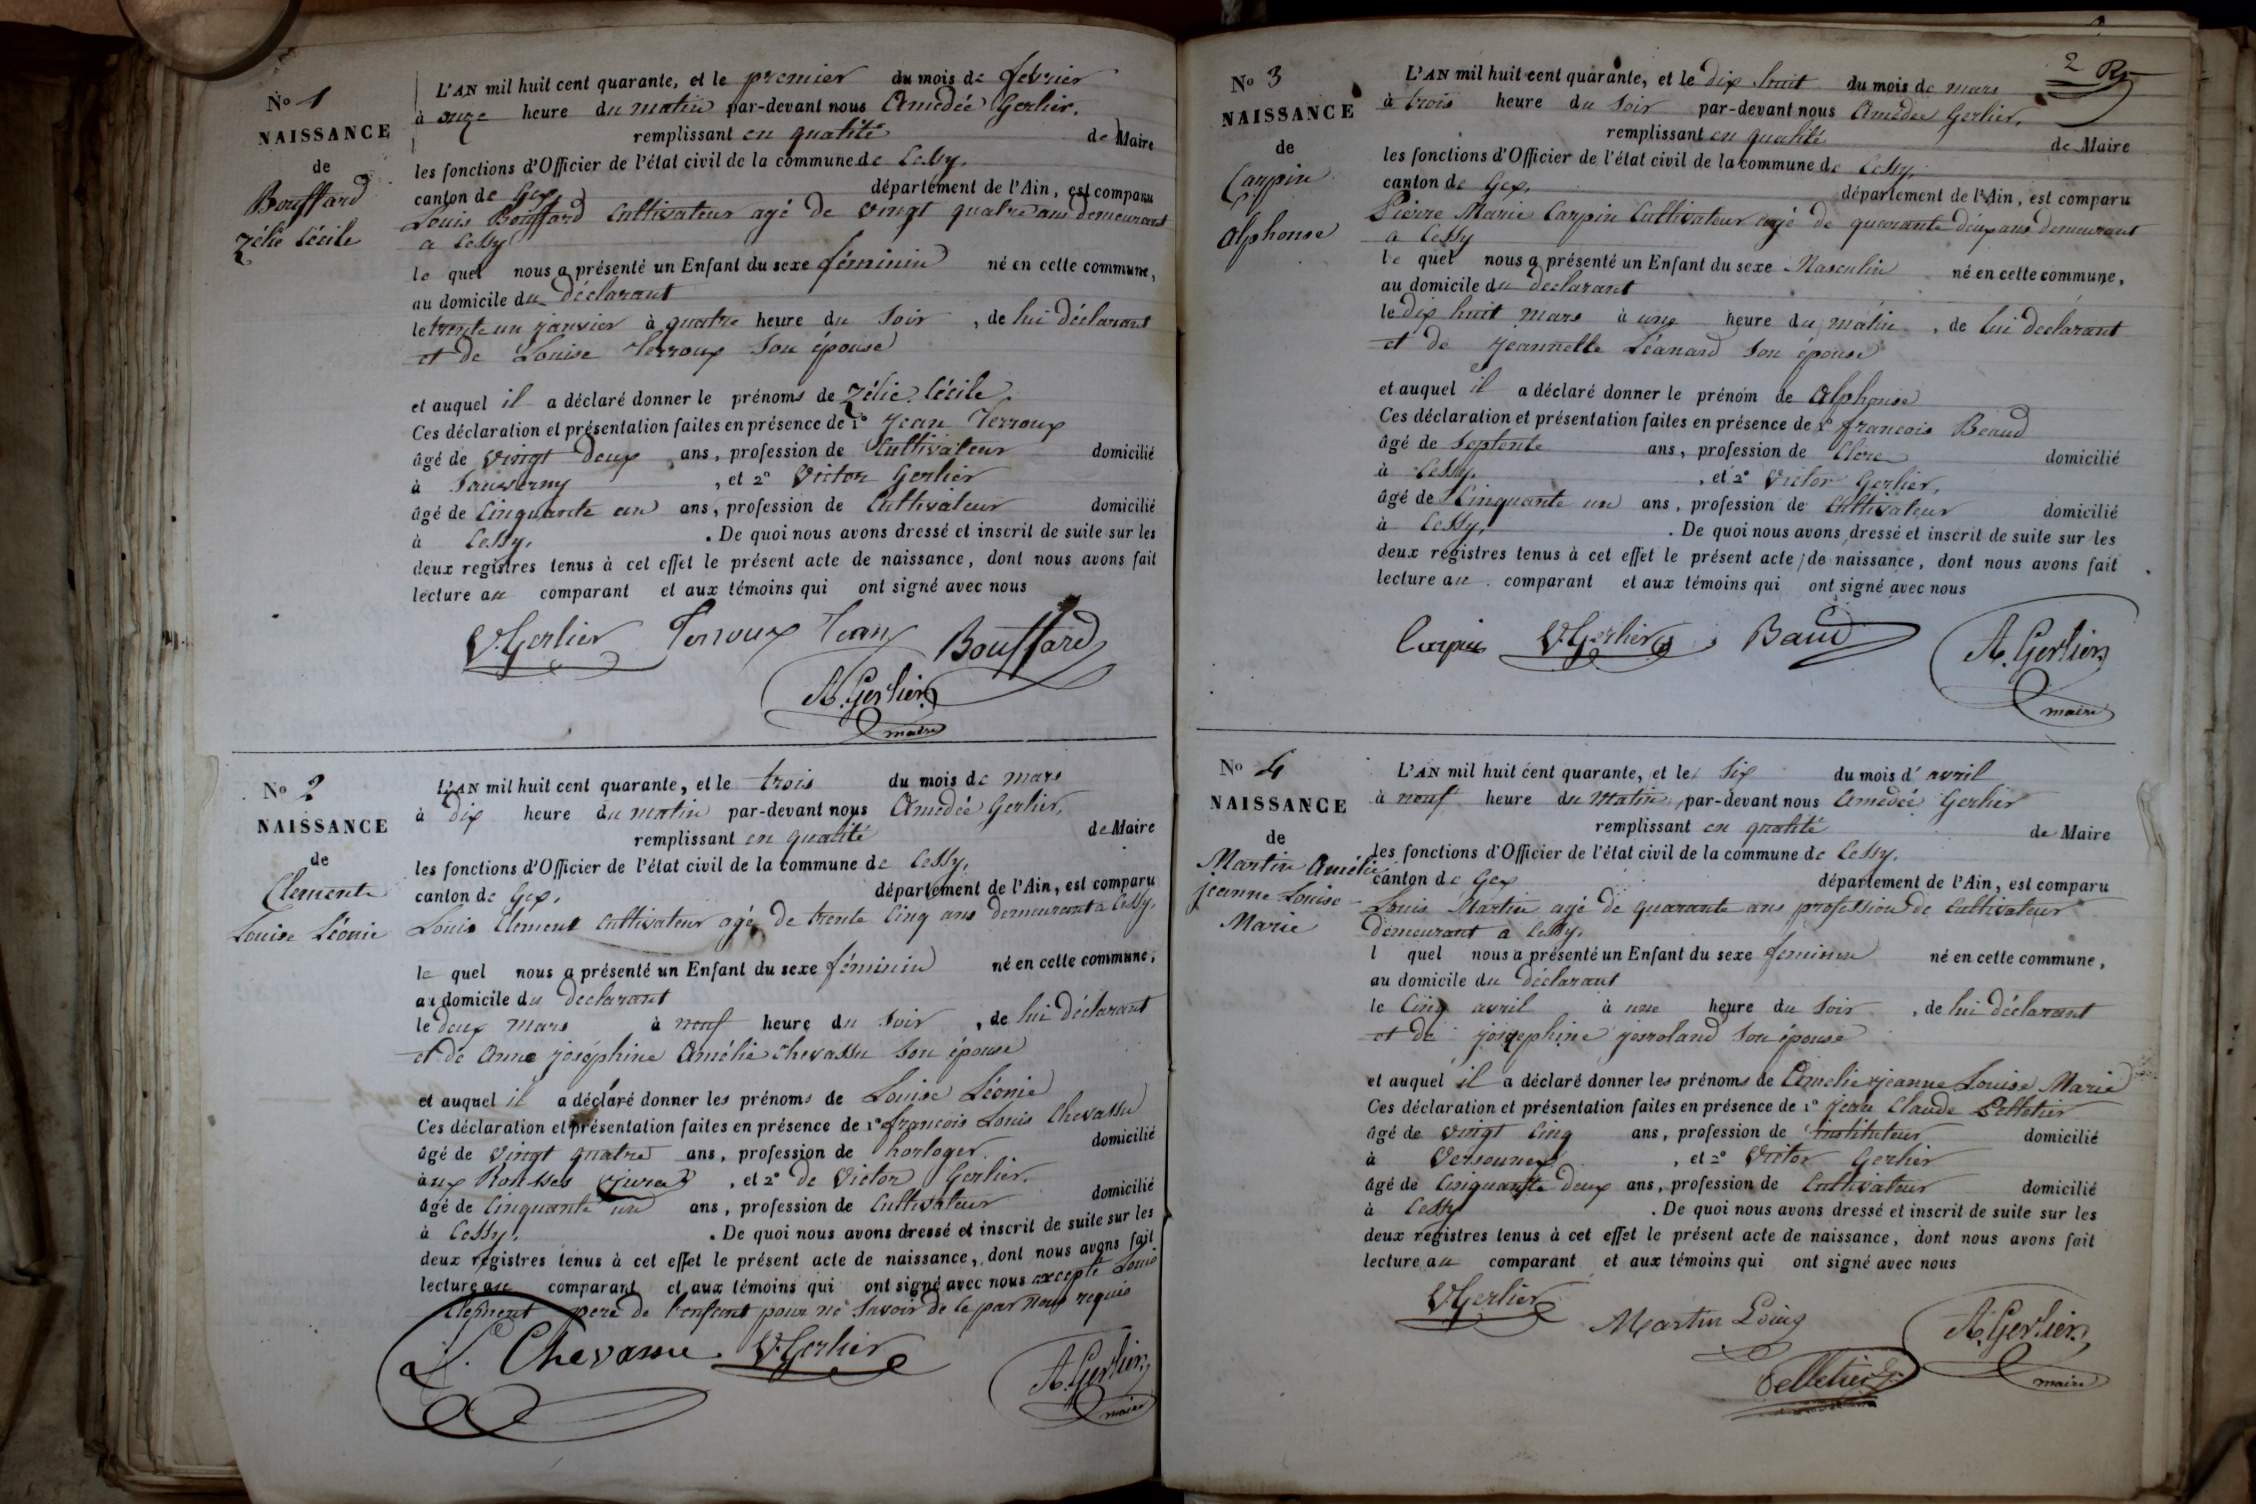 No 1
NAISSANCE
de
Bouffard
Zélie Cécile
L'AN mil huit cent quarante, et le premier du mois de février
à onze heure du matin par-devant nous Amédée Gerlier,
remplissant en qualité de Maire
les fonctions d'Officier de l'état civil de la commune de Cessy,
canton de Gex, département de l'Ain, est comparu
Louis Bouffard Cultivateur agé de vingt quatre ans demeurant
a Cessy
le quel nous a présenté un Enfant du sexe féminin né en cette commune,
au domicile du déclarant
le trente un janvier à quatre heure du soir, de lui déclarant
et de Louise Terroux son épouse
et auquel il a déclaré donner le prénoms de Zélie Cécile.
Ces déclaration et présentation faites en présence de 1° Jean Terroux
âgé de vingt deux ans, profession de Cultivateur domicilié
à Sauverny, et 2° Victor Gerlier
âgé de Cinquante un ans, profession de Cultivateur domicilié
à Cessy. . De quoi nous avons dressé et inscrit de suite sur les
deux registres tenus à cet effet le présent acte de naissance, dont nous avons fait
lecture au comparant et aux témoins qui ont signé avec nous
V. Gerlier Terroux Jean Bouffard
A. Gerlier
maire
No 2
NAISSANCE
de
Clemente
Louise Léonie
L'AN mil huit cent quarante, et le trois du mois de mars
à dix heure du matin par-devant nous Amédée Gerlier,
remplissant en qualité de Maire
les fonctions d'Officier de l'état civil de la commune de Cessy,
canton de Gex, département de l'Ain, est comparu
Louis Clement Cultivateur agé de trente Cinq ans demeurant a Cessy,
le quel nous a présenté un Enfant du sexe féminin né en cette commune,
au domicile du declarant
le deux mars à neuf heure du soir, de lui déclarant
et de Anne joséphine Amélie Chevassu son épouse
et auquel il a déclaré donner les prénoms de Louise Léonie
Ces déclaration et présentation faites en présence de 1° francois Louis Chevassu
âgé de vingt quatre ans, profession de horloger domicilié
aux Rousses (jura), et 2° de Victor Gerlier,
âgé de Cinquante un ans, profession de Cultivateur domicilié
à Cessy, . De quoi nous avons dressé et inscrit de suite sur les
deux registres tenus à cet effet le présent acte de naissance, dont nous avons fait
lecture au comparant et aux témoins qui ont signé avec nous excepté Louis
Clement pere de l'enfant pour ne savoir de ce par nous requis
L. Chevassu V. Gerlier A. Gerlier
maire
2
No 3
NAISSANCE
de
Carpin
Alphonse
L'AN mil huit cent quarante, et le dix huit du mois de mars
à trois heure du soir par-devant nous Amédée Gerlier,
remplissant en qualité de Maire
les fonctions d'Officier de l'état civil de la commune de Cessy,
canton de Gex, département de l'Ain, est comparu
Pierre Marie Carpin Cultivateur agé de quarante deux ans demeurant
a Cessy
le quel nous a présenté un Enfant du sexe Masculin né en cette commune,
au domicile du declarant
le dix huit mars à une heure du matin, de lui declarant
et de jeannette Léanard son épouse
et auquel il a déclaré donner le prénom de Alphonse
Ces déclaration et présentation faites en présence de 1° francois Beaud
âgé de Septente ans, profession de Clerc domicilié
à Cessy, , et 2° Victor Gerlier,
âgé de Cinquante un ans, profession de Cultivateur domicilié
à Cessy, . De quoi nous avons dressé et inscrit de suite sur les
deux registres tenus à cet effet le présent acte de naissance, dont nous avons fait
lecture au comparant et aux témoins qui ont signé avec nous
Carpin V. Gerlier Baud A. Gerlier
maire
No 4
NAISSANCE
de
Martin Amélie
jeanne Louise
Marie
L'AN mil huit cent quarante, et le Six du mois d'avril
à neuf heure du Matin, par-devant nous Amédée Gerlier
remplissant en qualité de Maire
les fonctions d'Officier de l'état civil de la commune de Cessy.
canton de Gex département de l'Ain, est comparu
Louis Martin agé de quarante ans profession de Cultivateur
demeurant a Cessy,
l quel nous a présenté un Enfant du sexe feminin né en cette commune,
au domicile du déclarant
le Cinq avril à une heure du soir, de lui déclarant
et de josephine son épouse
et auquel il a déclaré donner les prénoms de Amelie jeanne Louise Marie
Ces déclaration et présentation faites en présence de 1° Jean Claude Pelletier
âgé de vingt Cinq ans, profession de instituteur domicilié
à Versonnex, et 2° Victor Gerlier
âgé de Cinquante deux ans, profession de Cultivateur domicilié
à Cessy . De quoi nous avons dressé et inscrit de suite sur les
deux registres tenus à cet effet le présent acte de naissance, dont nous avons fait
lecture au comparant et aux témoins qui ont signé avec nous
V. Gerlier Martin Louis A. Gerlier
maire
Pelletier